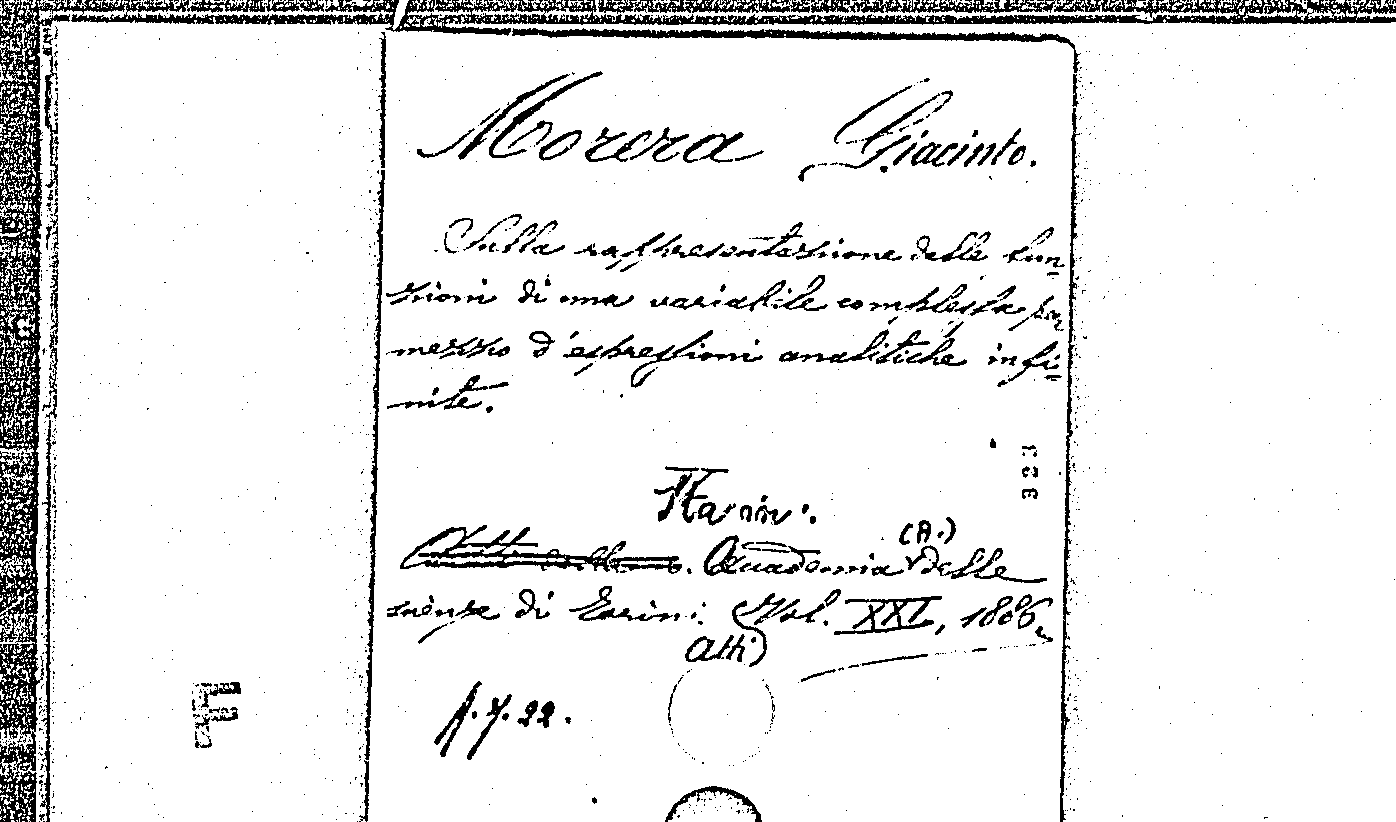 Morera Giacinto.
Sulla rappresentazione delle fun=
zioni di una variabile complessa per
mezzo d'espressioni analitiche infi=
nite.
323
Torino.
(R.)
Accademia delle
scienze di Torino. Vol. XXI, 1886.
Atti)
F
f. 7. 22.